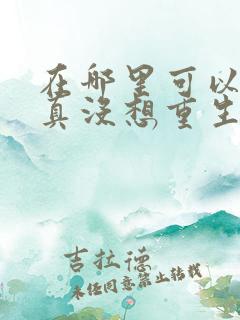 在哪里可以
真没想重生
吉拉德
未经同意禁止转载